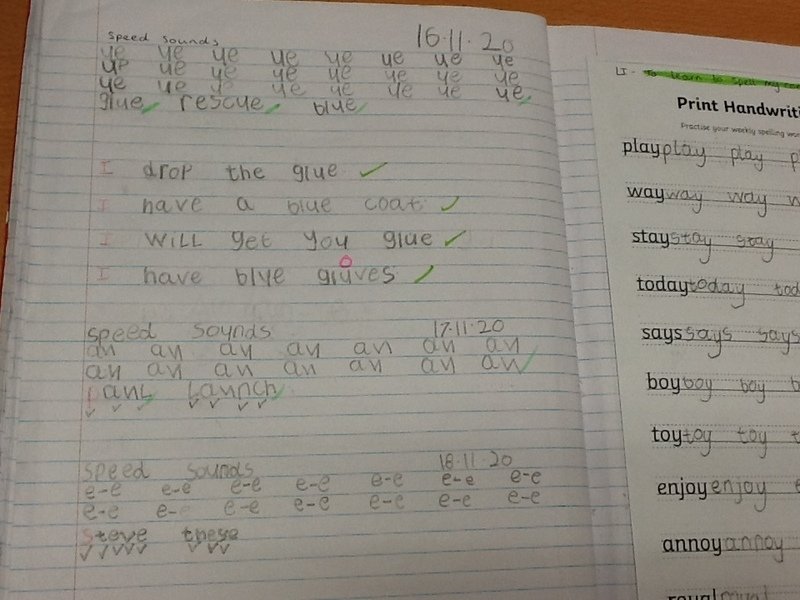 speed sounds 16.11.20
ue ue ue ue ue ue ue ue
ue ue ue ue ue ue ue ue
ue ue ue ue ue ue ue ue
glue rescue blue
I drop the glue
I have a blue coat
I will get you glue
I have blue gluves
speed sounds 17.11.20
au au au au au au au
au au au au au au au
Launch
speed sounds 18.11.20
e-e e-e e-e e-e e-e e-e e-e
e-e e-e e-e e-e e-e e-e e-e
Steve these
LI - To learn to spell my
Print Handwriti
Practise your weekly spelling wo
play play play p
way way way w
stay stay stay
today today tod
says says says
boy boy boy b
toy toy toy t
enjoy enjoy e
annoy annoy
royal royal